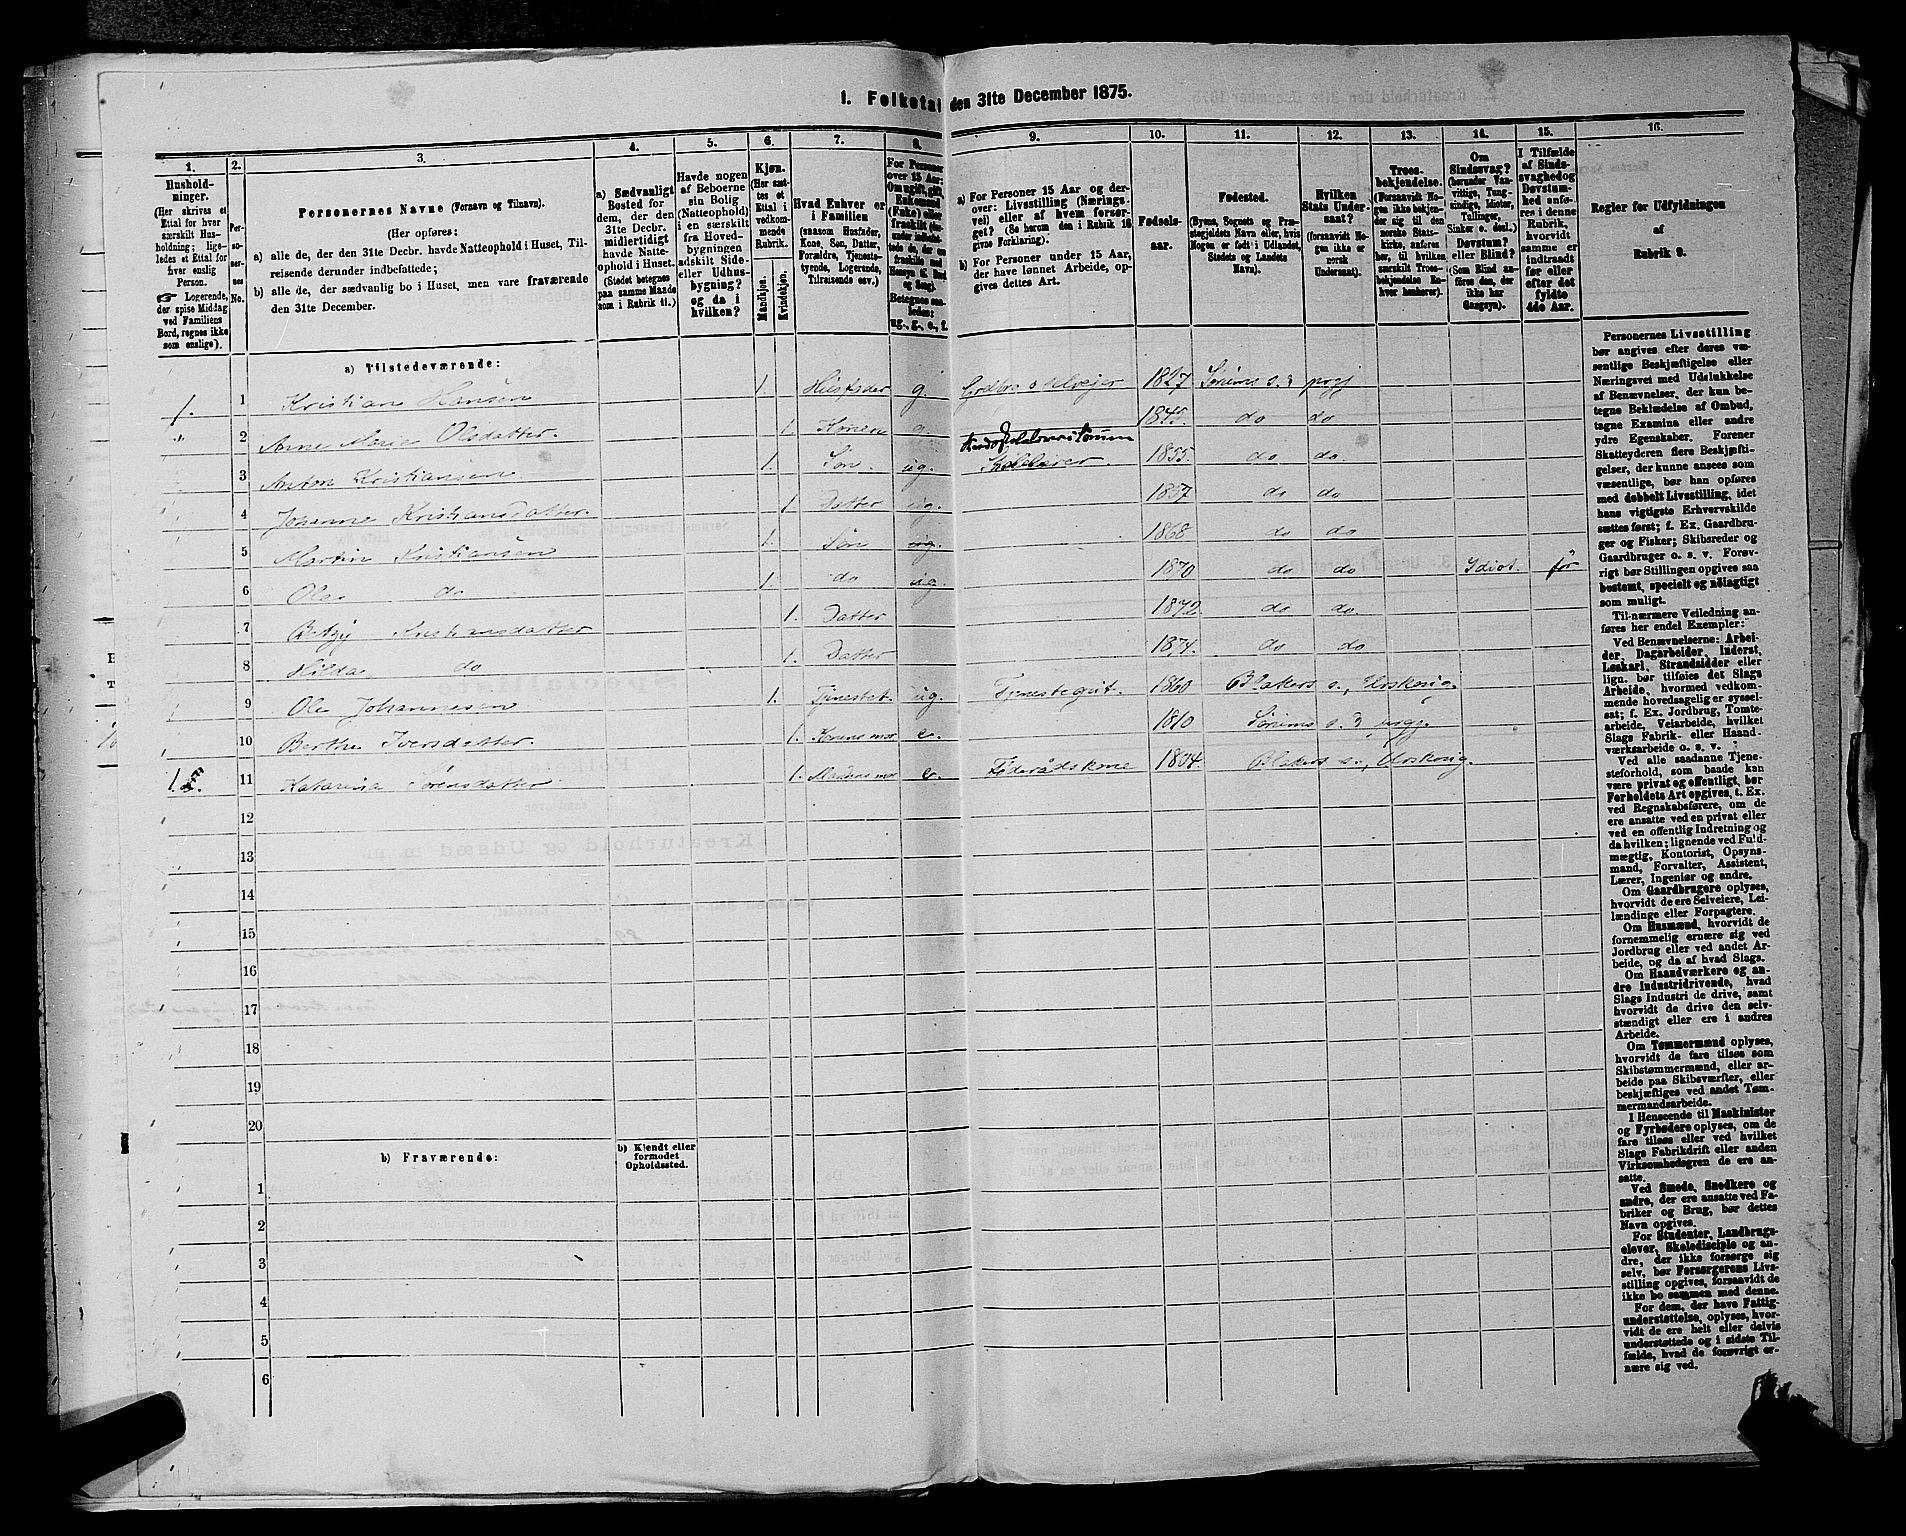 1. Folketal den 31te December 1875.
1. 2. 3. 4. 5. 6. 7. 8. 9. 10. 11. 12. 13. 14. 15. 16.
Husholdninger.
(Her skrives et
Ettal for hver
særskilt Husholdning;
ligeledes et Ettal for
hver enslig
Person.
☞ Logerende,
der spise Middag
ved Familiens
Bord, regnes ikke
som enslige).
Personernes No.
Personernes Navne (Fornavn og Tilnavn).
(Her opføres:
a) alle de, der den 31te Decbr. havde Natteophold i Huset, Tilreisende
derunder indbefattede;
b) alle de, der sædvanlig bo i Huset, men vare fraværende
den 31te December.
a) Sædvanligt
Bosted for
dem, der den
31te Decbr.
midlertidigt
havde Natteophold
i Huset.
(Stedet betegnes
paa samme Maade
som i Rubrik 11.)
Havde nogen
af Beboerne
sin Bolig
(Natteophold)
i en særskilt
fra Hovedbygningen
adskilt Side-
eller Udhusbygning?
og da i
hvilken?
Kjøn.
(Her sættes
et
Ettal i
vedkommende
Rubrik.
Mandkjøn.
Kvindekjøn.
Hvad Enhver er
i Familien
(saasom Husfader,
Kone, Søn, Datter,
Forældre, Tjenestetyende,
Logerende,
Tilreisende osv.)
For Personer
over 15 Aar:
Om ugift, gift,
Enkemand
(Enke) eller
fraskilt
Betegnes saaledes:
ug., g., e., f.
a) For Personer 15 Aar og derover:
Livsstilling (Næringsvei)
eller af hvem forsørget?
(Se herom den i Rubrik 16
givne Forklaring).
b) For Personer under 15 Aar,
der have lønnet Arbeide, opgives
dettes Art.
Fødselsaar.
Fødested.
(Byens, Sognets og Præstegjeldets
Navn eller, hvis
Nogen er født i Udlandet,
Stedets og Landets
Navn).
Hvilken
Stats Undersaat?
(forsaavidt Nogen
ikke er
norsk
Undersaat).
Troesbekjendelse.
(Forsaavidt Nogen
ikke bekjender
sig til den
norske Statskirke,
anføres
her, til hvilken
særskilt Troesbekjendelse
Enhver
henhører).
Om
Sindssvag?
(herunder Vanvittige,
Tungsindige,
Idioter,
Tullinger,
Sinker o. desl.)
Døvstum?
eller Blind?
(Som Blind anføres
den, der
ikke har
Gangsyn).
I Tilfælde
af Sindssvaghed
og
Døvstumhed
anføres
i denne
Rubrik,
hvorvidt
samme er
indtraadt
før eller
efter det
fyldte
4de Aar.
Regler for Udfyldningen
af
Rubrik 9.
a) Tilstedeværende:
1. 1 Kristian Hansen 1. Husfader g. Grdbr. o selvejer 1827 Sørums s. & prgj
" 2 Anne Marie Olsdatter. 1. Konen g. 1845. do do
3 Anton Kristiansen 1. Søn. ug. Skolelærer 1855. do do.
4 Johanne Kristiansdatter. 1 Datter ug. 1857 do do
5 Martin Kristiansen 1. Søn ug. 1868 do do
6 Ole do 1. do ug. 1870 do do Idiot. før
7 Betzy Kristiansdatter 1. Datter 1872. do do.
8 Hilda do 1. Datter 1874. do do
9 Ole Johannesen 1. Tjenestet. ug. Tjenestegut. 1860 Blakers s., Urskoug.
10 Berthe Iversdatter. 1. Konens mor e. 1810 Sørums s. & prgj.
1 11 Katarina Sørensdatter 1. Mandens mor e. Føderådskone 1804. Blakers s., Urskoug.
12
13
14
15
16
17
18
19
20
b) Fraværende:
b) Kjendt eller
formodet
Opholdssted.
1
2
3
4
5
6
Personernes Livsstilling
bør angives efter deres væsentlige
Beskjæftigelse eller
Næringsvei med Udelukkelse
af Benævnelser, der kun betegne
Beklædelse af Ombud,
tagne Examina eller andre
ydre Egenskaber. Forener
Skatteyderen flere Beskjæftigelser,
der kunne ansees som
væsentlige, bør han opføres
med dobbelt Livsstilling, idet
hans vigtigste Erhvervskilde
sættes først; f. Ex. Gaardbruger
og Fisker; Skibsreder og
Gaardbruger o. s. v. Forøvrigt
bør Stillingen opgives saa
bestemt, specielt og nøiagtigt
som muligt.
Til nærmere Veiledning anføres
her endel Exempler:
Ved Benævnelserne: Arbeider,
Dagarbeider, Inderst,
Løskarl, Strandsidder eller
lign. bør tilføies det Slags
Arbeide, hvormed vedkommende
hovedsagelig er sysselsat;
f. Ex. Jordbrug, Tomtearbeide,
Veiarbeide, hvilket
Slags Fabrik- eller Haandværksarbeide
o. s. v.
Ved alle saadanne Tjenesteforhold,
som baade kan
være privat og offentligt, bør
Forholdets Art opgives, t. Ex.
ved Regnskabsførere, om de
ere ansatte ved en privat eller
ved en offentlig Indretning og
da hvilken; lignende ved Fuldmægtig,
Kontorist, Opsynsmand,
Forvalter, Assistent,
Lærer, Ingeniør og andre.
Om Gaardbrugere oplyses,
hvorvidt de ere Selveiere, Leilændinge
eller Forpagtere.
Om Husmænd, hvorvidt de
fornemmelig ernære sig ved
Jordbrug eller ved andet Arbeide,
og da af hvad Slags.
Om Haandværkere og andre
Industridrivende, hvad
Slags Industri de drive, samt
hvorvidt de drive den selvstændigt
eller ere i andres
Arbeide.
Om Tømmermænd oplyses,
hvorvidt de fare tilsøs som
Skibstømmermænd, eller arbeide
paa Skibsværfter, eller
beskjæftiges ved andet Tømmermandsarbeide.
I Henseende til Maskinister
og Fyrbødere oplyses, om de
fare tilsøs eller ved hvilket
Slags Fabrikdrift eller anden
Virksomhedsgren de ere ansatte.
Ved Smede, Snedkere og
andre, der ere ansatte ved Fabriker
og Brug, bør dettes
Navn opgives.
For Studenter, Landbrugselever,
Skoledisciple og andre,
der ikke forsørge sig
selv, bør Forsørgerens Livsstilling
opgives, forsaavidt de
ikke bo sammen med denne.
For dem, der have Fattigunderstøttelse,
oplyses, hvorvidt
de ere helt eller delvis
understøttede og i sidste Tilfælde,
hvad de forøvrigt ernære
sig ved.